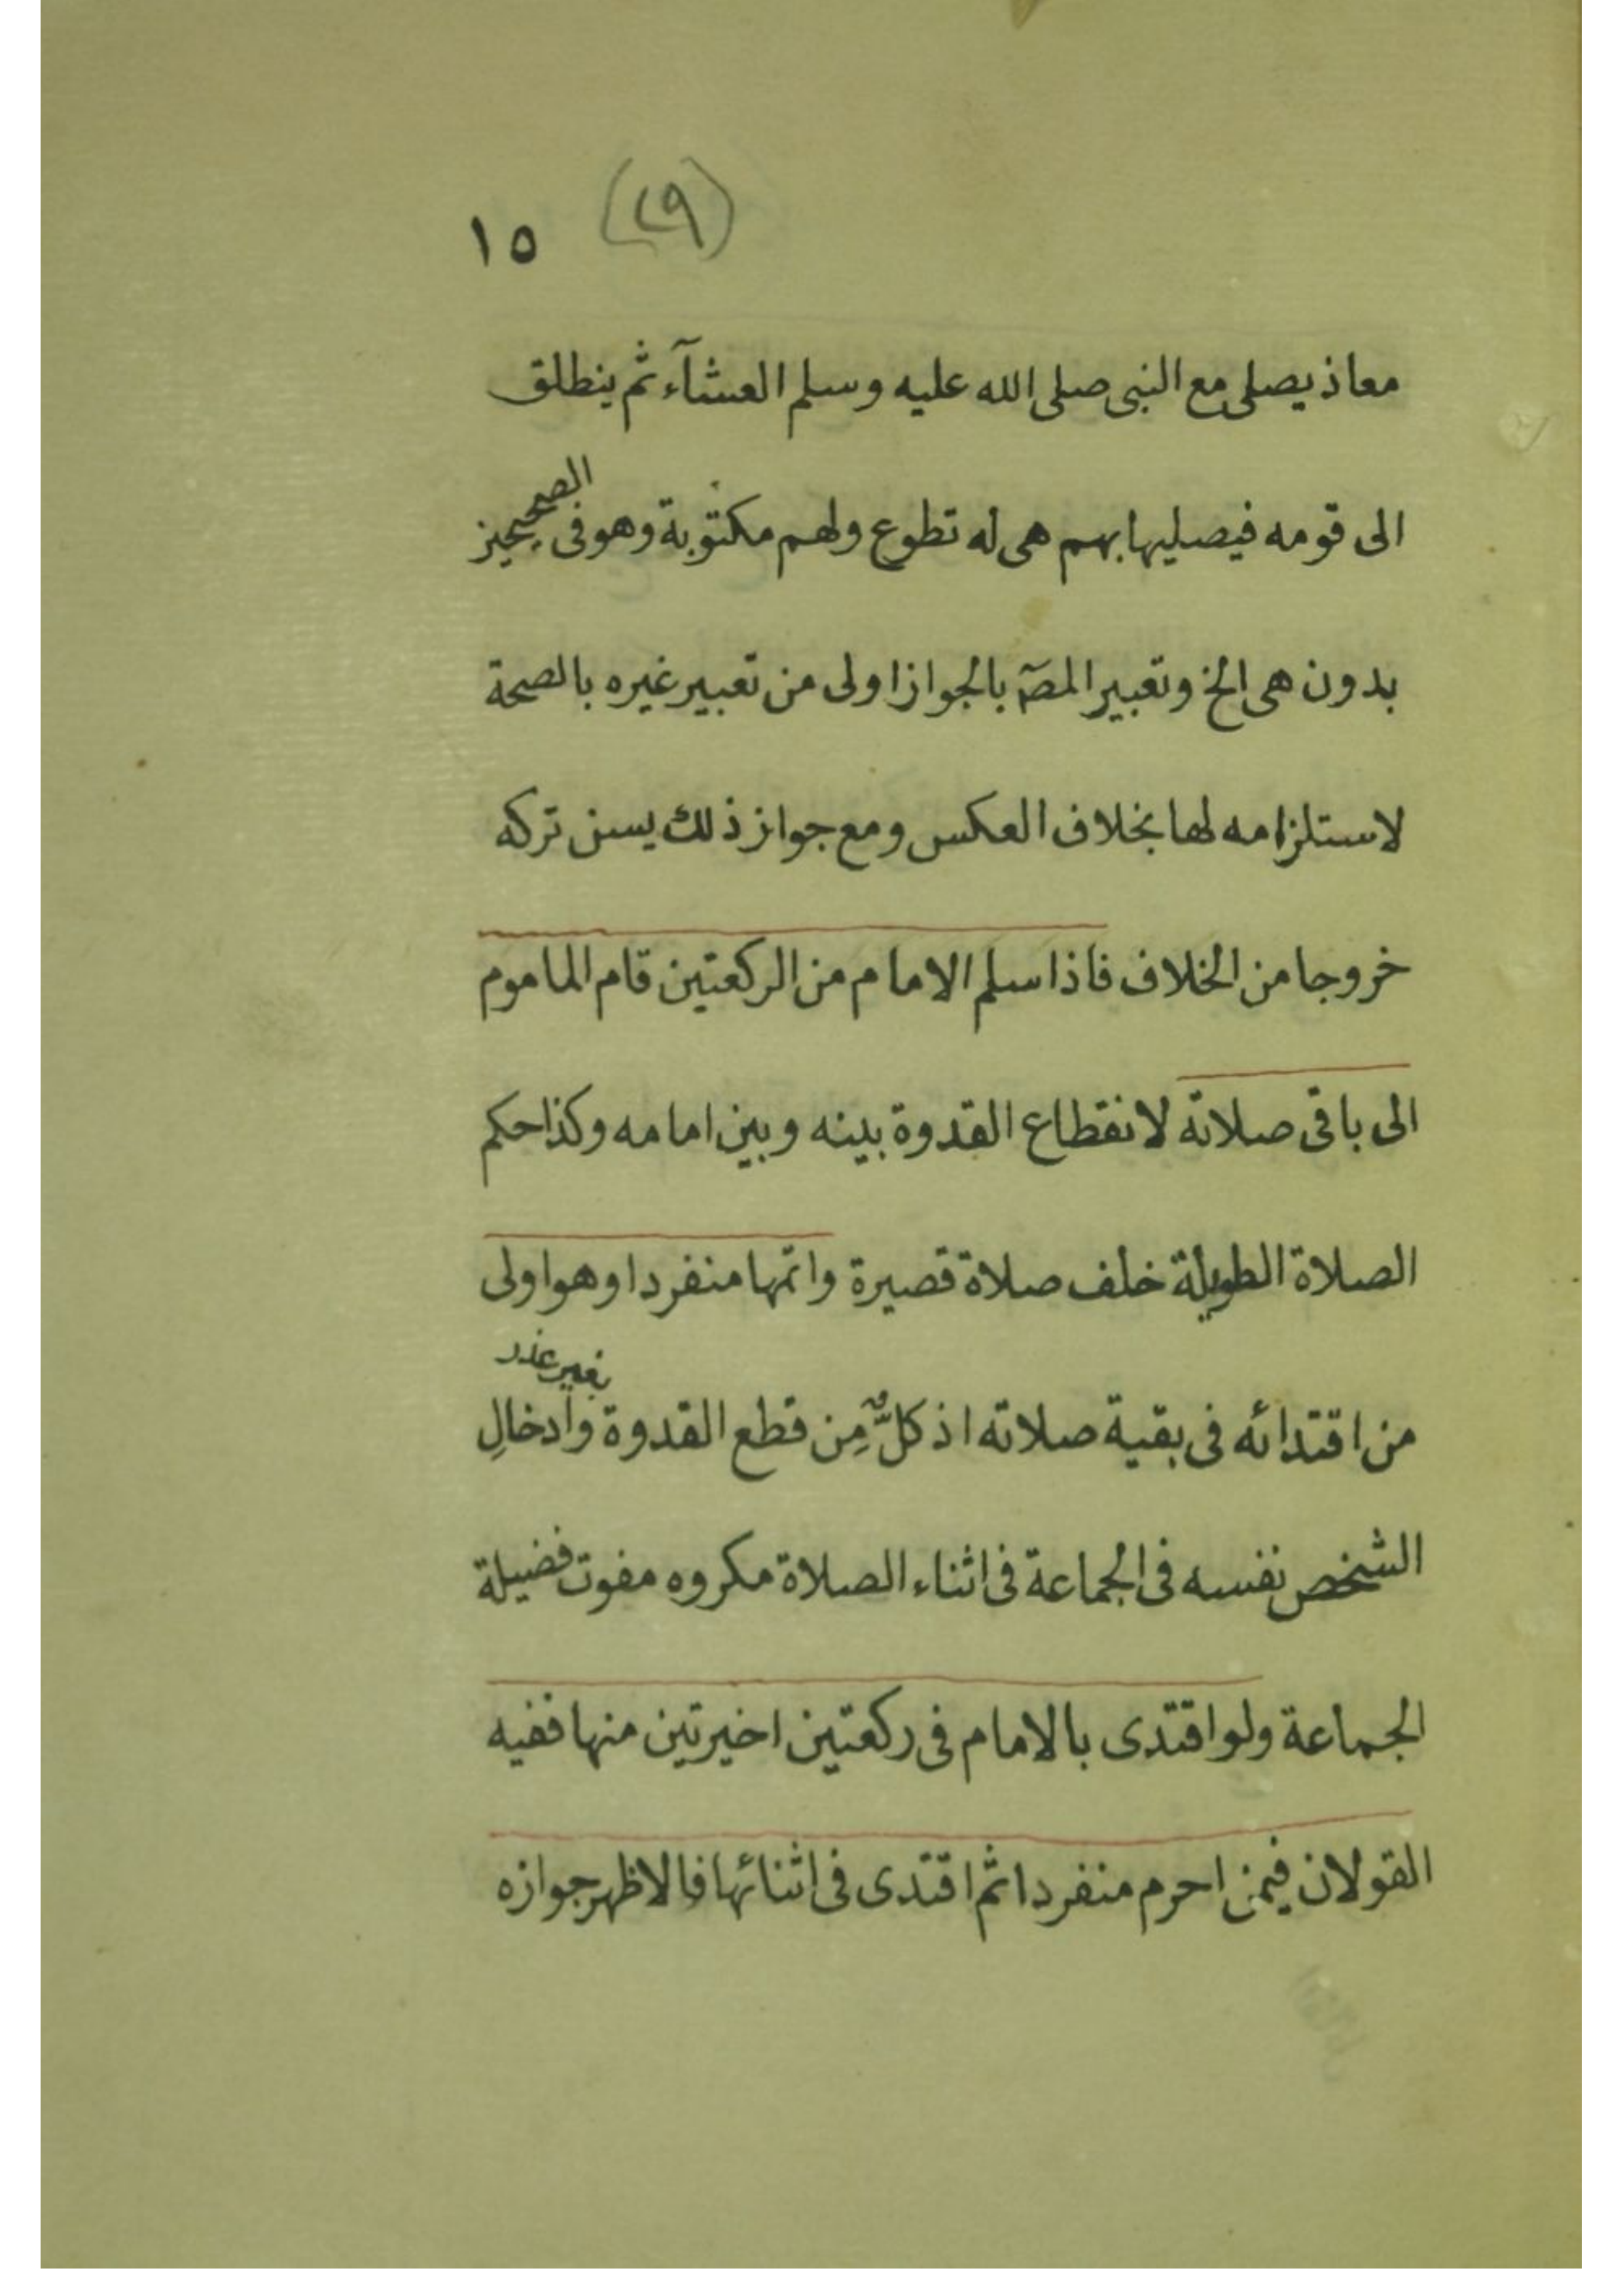 (٢٩) ١٥
معاذ يصلى مع النبى صلى الله عليه وسلم العشآء ثم ينطلق
الى قومه فيصليها بهم هى له تطوع ولهم مكتوبة وهو فى الصحيحين
بدون هى الخ وتعبير المصۤ بالجواز اولى من تعبير غيره بالصحة
لاستلزامه لها بخلاف العكس ومع جواز ذلك يسن تركه
خروجا من الخلاف فاذا سلم الامام من الركعتين قام الماموم
الى باقى صلاته لانقطاع القدوة بينه وبين امامه وكذا حكم
الصلاة الطويلة خلف صلاة قصيرة واتمها منفردا وهو اولى
من اقتدائه فى بقية صلاته اذ كلٌّ مِن قطع القدوة بغير عذر وادخالِ
الشخص نفسه فى الجماعة فى اثناء الصلاة مكروه مفوت فضيلة
الجماعة ولو اقتدى بالامام فى ركعتين اخيرتين منها ففيه
القولان فيمن احرم منفردا ثم اقتدى فى اثنائها فالاظهر جوازه